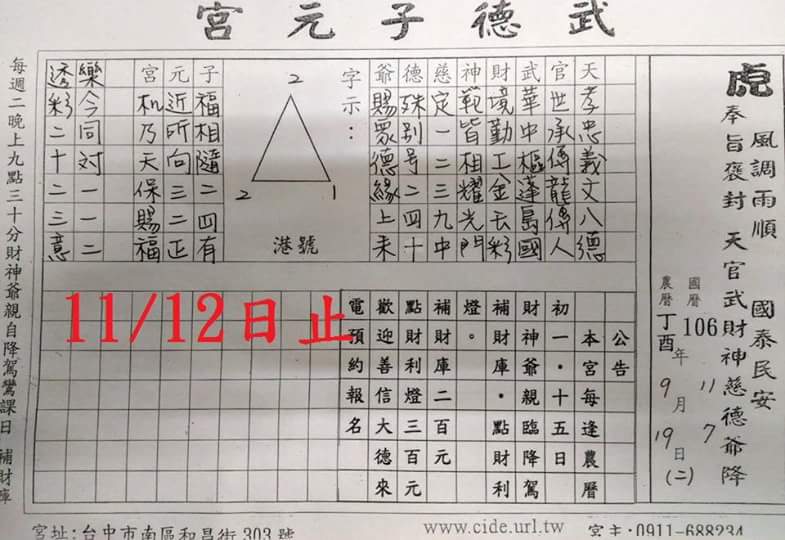 武德子元宮
虎
風調雨順 國泰民安
奉旨褒封 天官武財神慈德爺降
國曆106年11月7日(二)
農曆丁酉年9月19日
天孝忠義文八德
官世承傳龍傳人
武華中樞蓬島國
財境勤工金云彩
神範皆相耀光門
慈定一二三九中
德殊別号二四十
爺賜眾德緣上來
字示：
2
2 1
港號
子福相隨二四有
元近所向三二正
宮机乃天保賜福
樂今同對一一二
透彩二十二三意
公告
本宮每逢農曆
初一・十五日
財神爺親臨降駕
補財庫・點財利
燈。
補財庫二百元
點財利燈三百元
歡迎善信大德來
電預約報名
11/12日止
每週二晚上九點三十分財神爺親自降駕鸞課日 補財庫
宮址:台中市南區和昌街303號
www.cide.url.tw
宮主:0911-688234